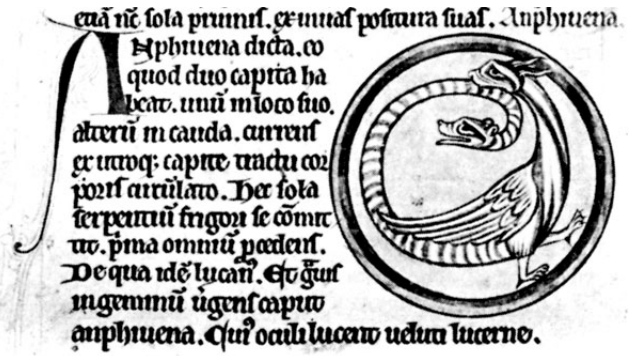 etiā nc̄ sola pruinis. exuuias positura suas. Anphiuena
Anphiuena dicta. eo
quod duo capita ha
beat. unū in loco suo.
alterū in cauda. currens
ex utroq; capite tractu cor
poris circūlato. Hec sola
serpentiū frigori se cōmit
tit. pͥma omniū ꝓcedens.
De qua idē lucan᷒. Et gͣuis
in geminū ūgens caput
anphiuena. Cuiꝰ oculi lucent ueluti lucerne.